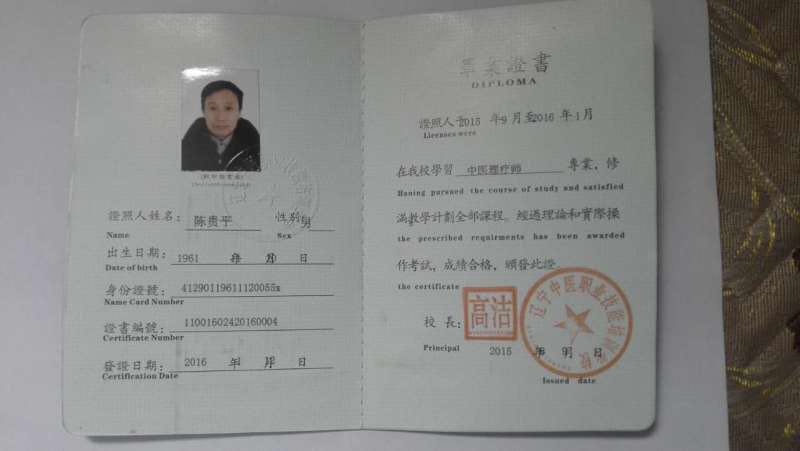 證照人姓名： 陈贵平 性别 男
Name Sex
出生日期： 1961 年 月 日
Date of birth
身份證號： 41290119611120055x
Name Card Number
證書編號： 11001602420160004
Certificate Number
發證日期： 2016 年 月 日
Certification Date
畢業證書
DIPLOMA
證照人于2015 年9月至2016年1月
Licenses were
在我校學習 中医理疗师 專業，修
Having pursued the course of study and satisfied
滿教學計劃全部課程。經過理論和實際操
the prescribed requirments has been awarded
作考試，成績合格，頒發此證
the certificate
校 長： 高洁
Principal 2015 年 9 月 日
Issued date
辽宁中医职业技能培训学校